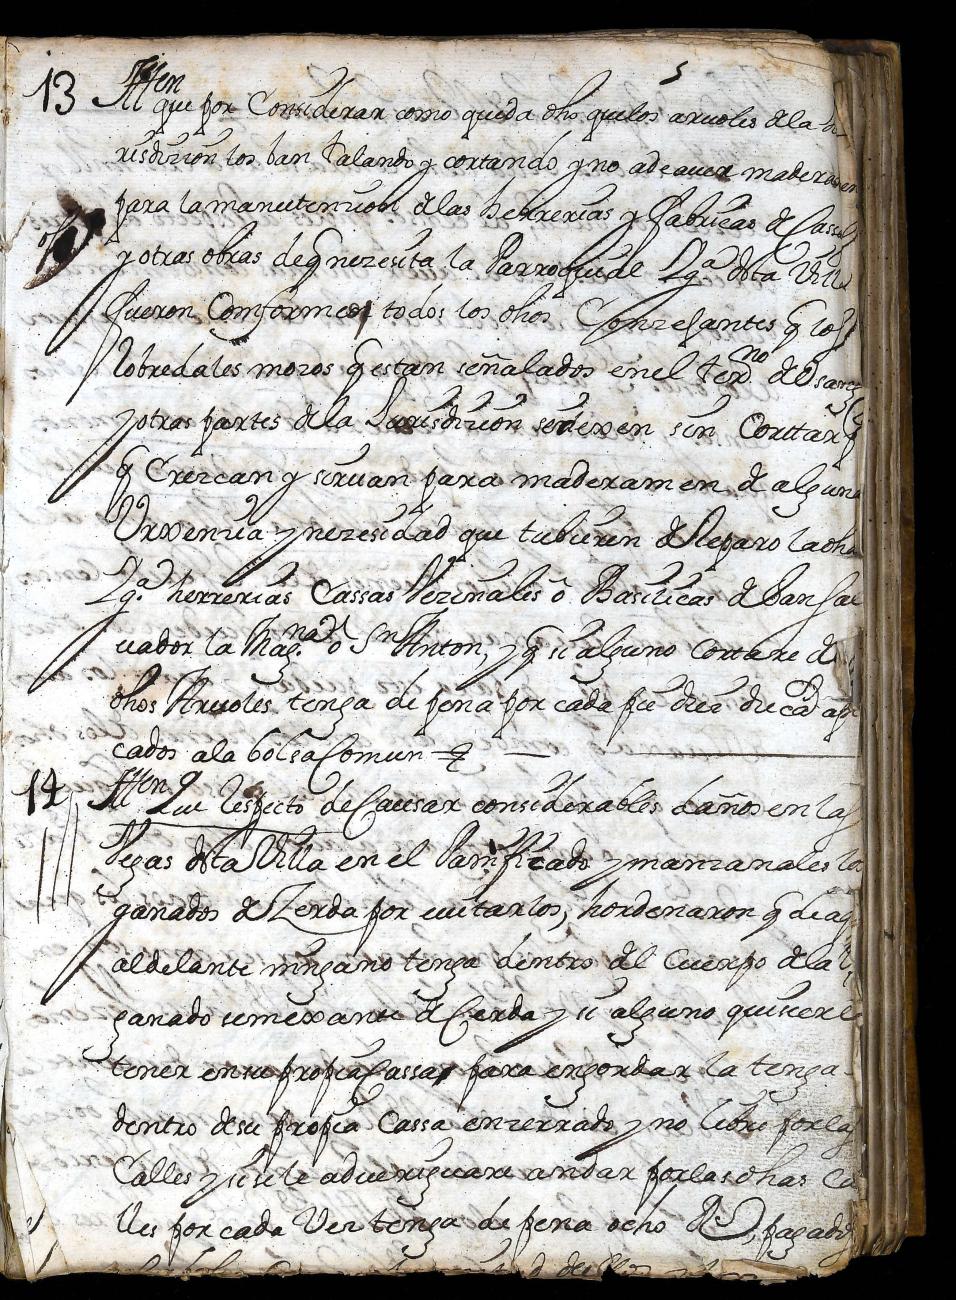 5
13 Itten
que por Considerar como queda dho que los arvoles de la Ju
risdizion los ban talando y cortando y no a de aver maderamen
para la manutenzion de las herrerias y fabricas de Cassas
y otras obras de q nezesita la Parroquial Ygª desta Villa
fueron Comformes todos los dhos Conzejantes q los
Robredales mozos q estan señalados en el termno de
y otras partes de la Jurisdizion se dexen sin Cortar
q Crezcan y sirvan para maderamen de alguna
Urxenzia y nezesidad que tubieren de Reparo la dha
Ygª herrerias Cassas Vezinales o Basilicas de San Sal
vador la Magna o Sn Anton, y q si alguno Cortare de
dhos Arvoles tenga de pena por cada pie diez ducados apli
cados a la bolsa Comun
14 Itten Que Respecto de Causar considerables daños en las
Vegas desta Villa en el Panificado y manzanales los
ganados de Zerda por evitarlos, hordenaron q de aq
aldelante ninguno tenga dentro del Cuerpo de la V
ganado semexante de Cerda y si alguno quisiere
tener en su propia Cassa para engordar la tenga
dentro de su propia Cassa enzerrado y no libre por las
Calles y si se le adveriguare andar por las dhas Ca
lles por cada Vez tenga de pena ocho Rs, pagados